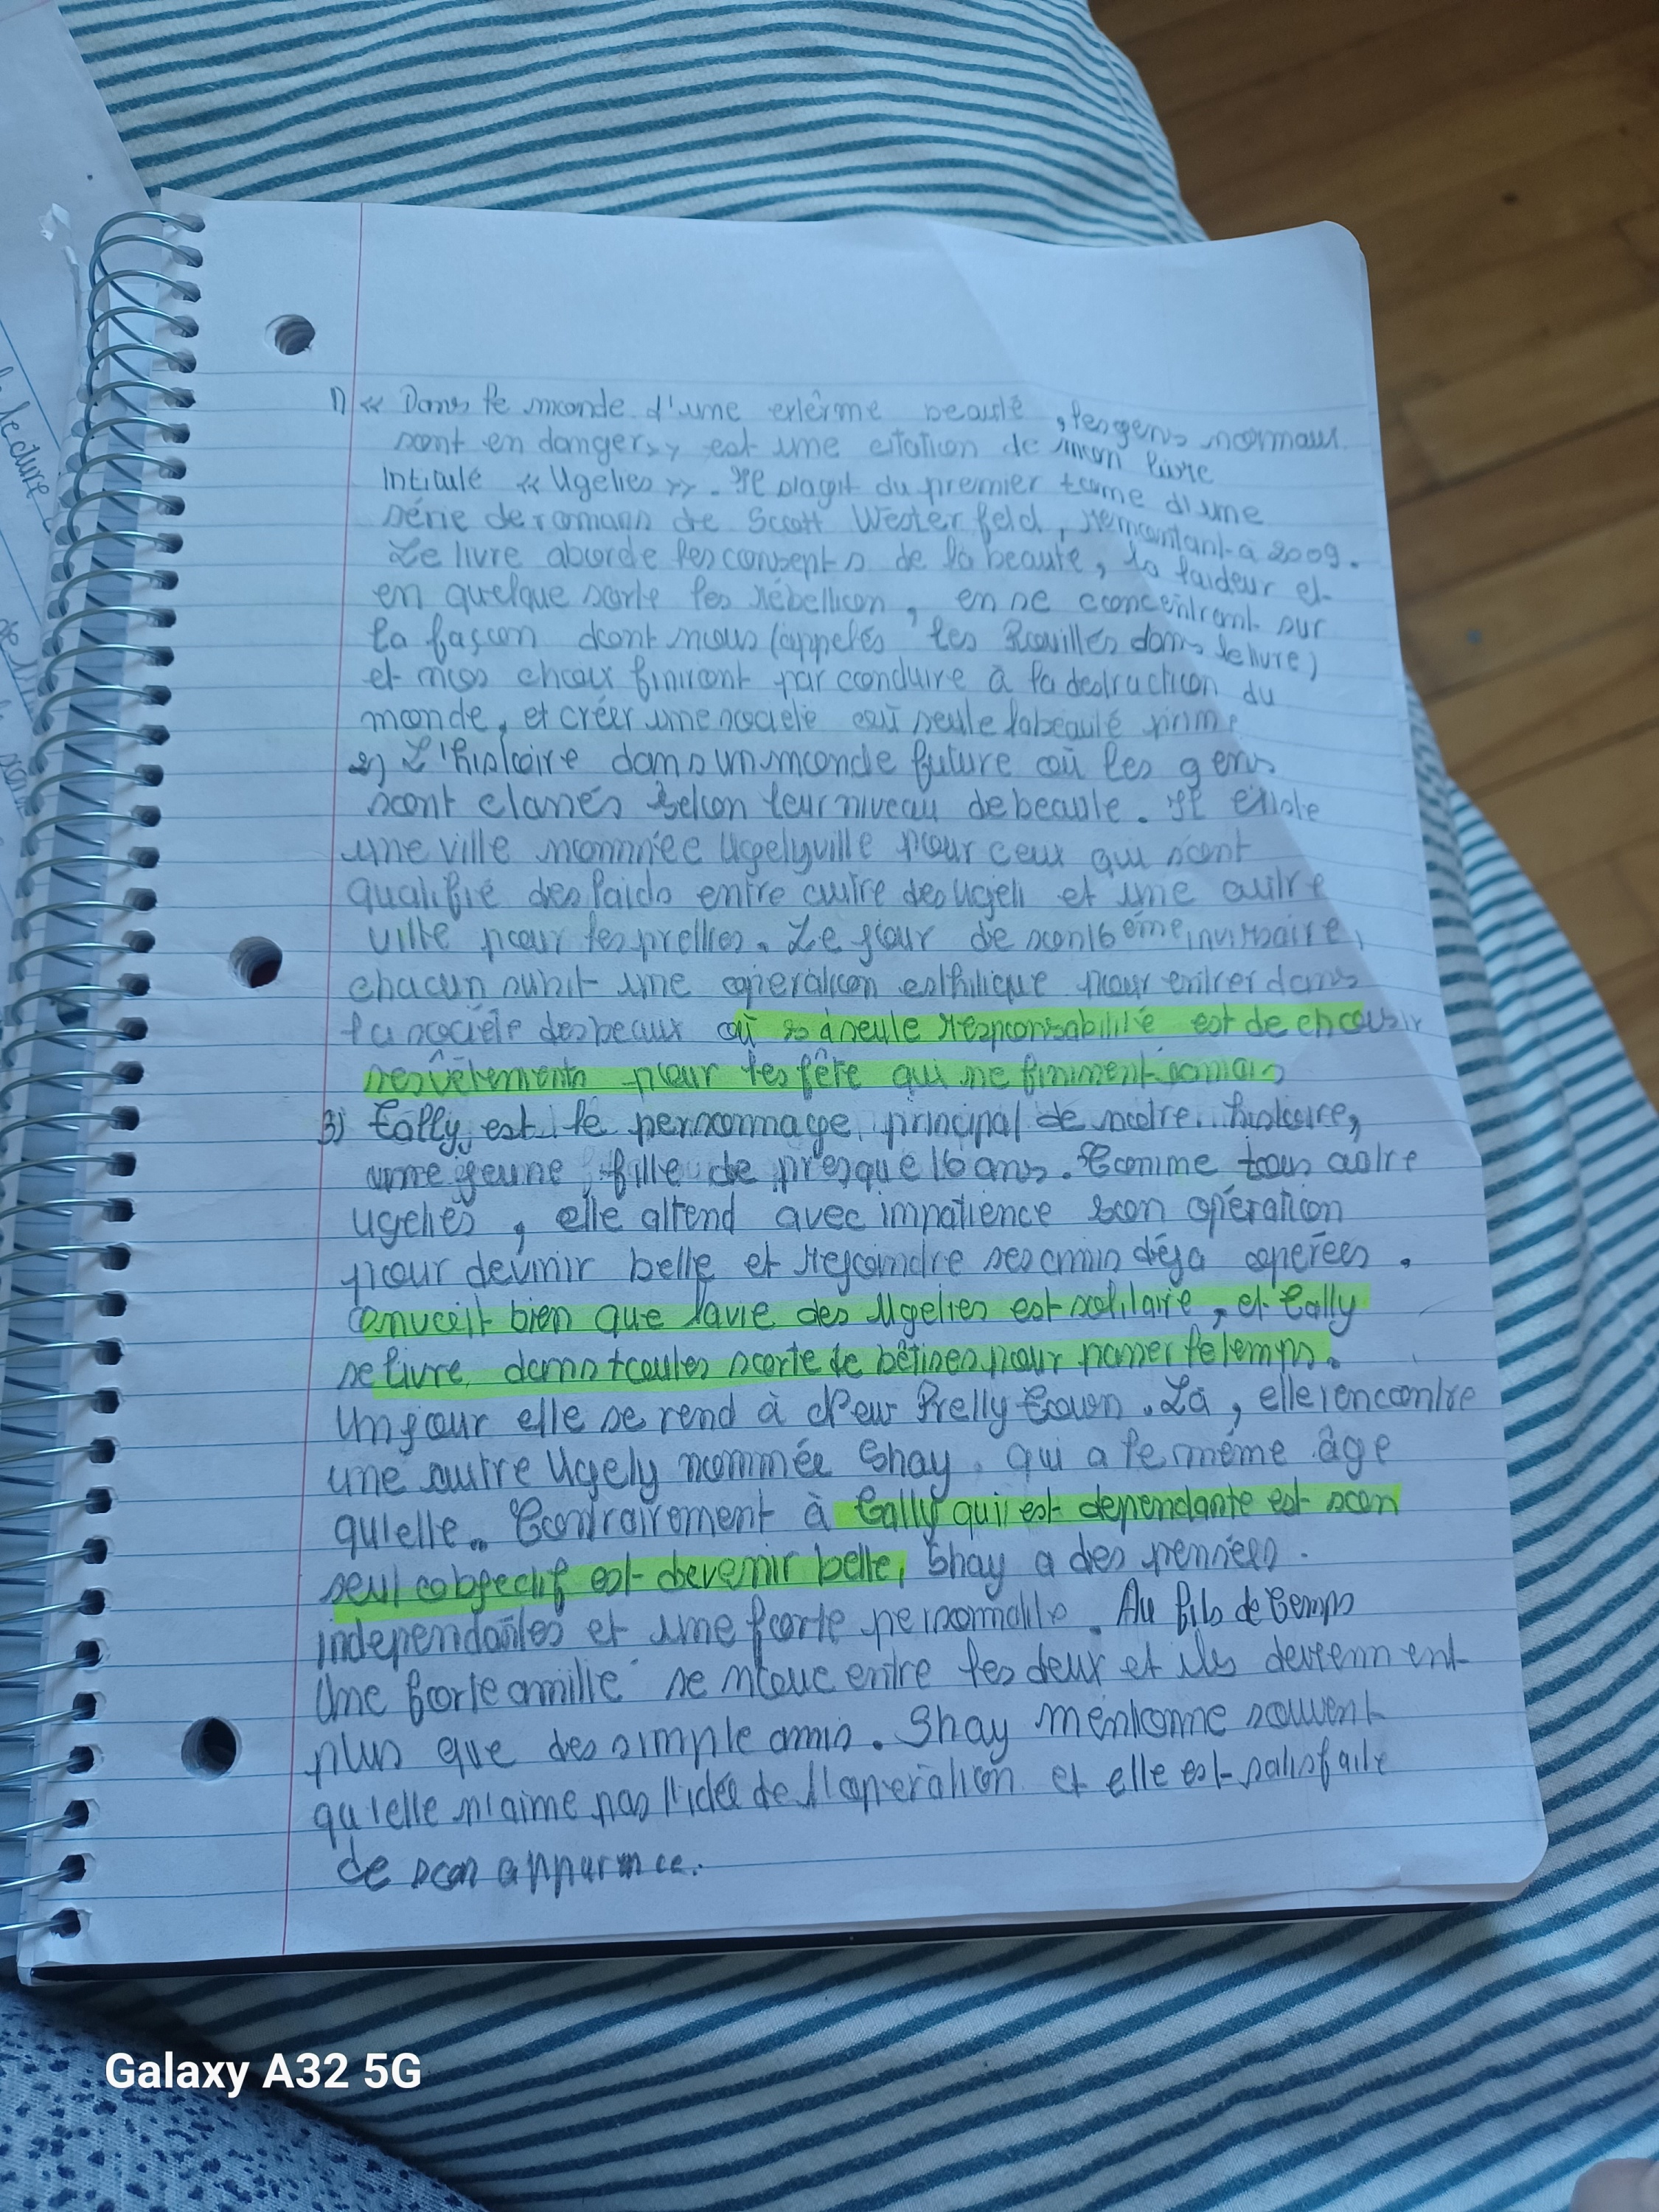 1) « Dans le monde d'une exterme beauté, les gens normaux
sont en danger» est une citation de mon livre
Intitulé « Ugelies ». Il s'agit du premier tome d'une
série de romans de Scott Westerfeld, remontant à 2009.
Le livre aborde les consepts de la beauté, la laideur et
en quelque sorte les rébellion, en se concentrant sur
la façon dont nous (appelés les Rouillés dans le livre)
et nos choix finiront par conduire à la destruction du
monde, et créer une société où seule la beauté prime
2) L'histoire dans un monde future où les gens
sont classés selon leur niveau de beauté. Il existe
une ville nommée Ugelyville pour ceux qui sont
qualifié des laids entre autre des ugeli et une autre
ville pour les pretties. Le jour de son 16 ème
chacun subit une opération pour entrer dans
la société des beaux où sa seule responsabilité est de choisir
ses vêtements pour les fête qui ne finiment jamais
3) Tally est le personnage principal de notre histoire,
une jeune fille de presque 16 ans. Comme tous autre
ugelies, elle attend avec impatience son opération
pour devinir belle et rejoindre ses amis déja opérées.
bien que la vie des Ugelies est solitaire, et Tally
se livre dans toutes sorte de bêtises pour passer le temps.
Un jour elle se rend à New Pretty Town. Là, elle rencontre
une autre Ugely nommée Shay qui a le même âge
qu'elle. Contrairement à Tally qui est dependante est son
seul objectif est devenir belle, Shay a des pensées
independantes et une forte personnalité. Au fils de temps
Une forte amitié se noue entre les deux et ils deviennent
plus que des simple amis. Shay mentionne souvent
qu'elle n'aime pas l'idée de l'opération et elle est satisfaite
de son apparence.
Galaxy A32 5G